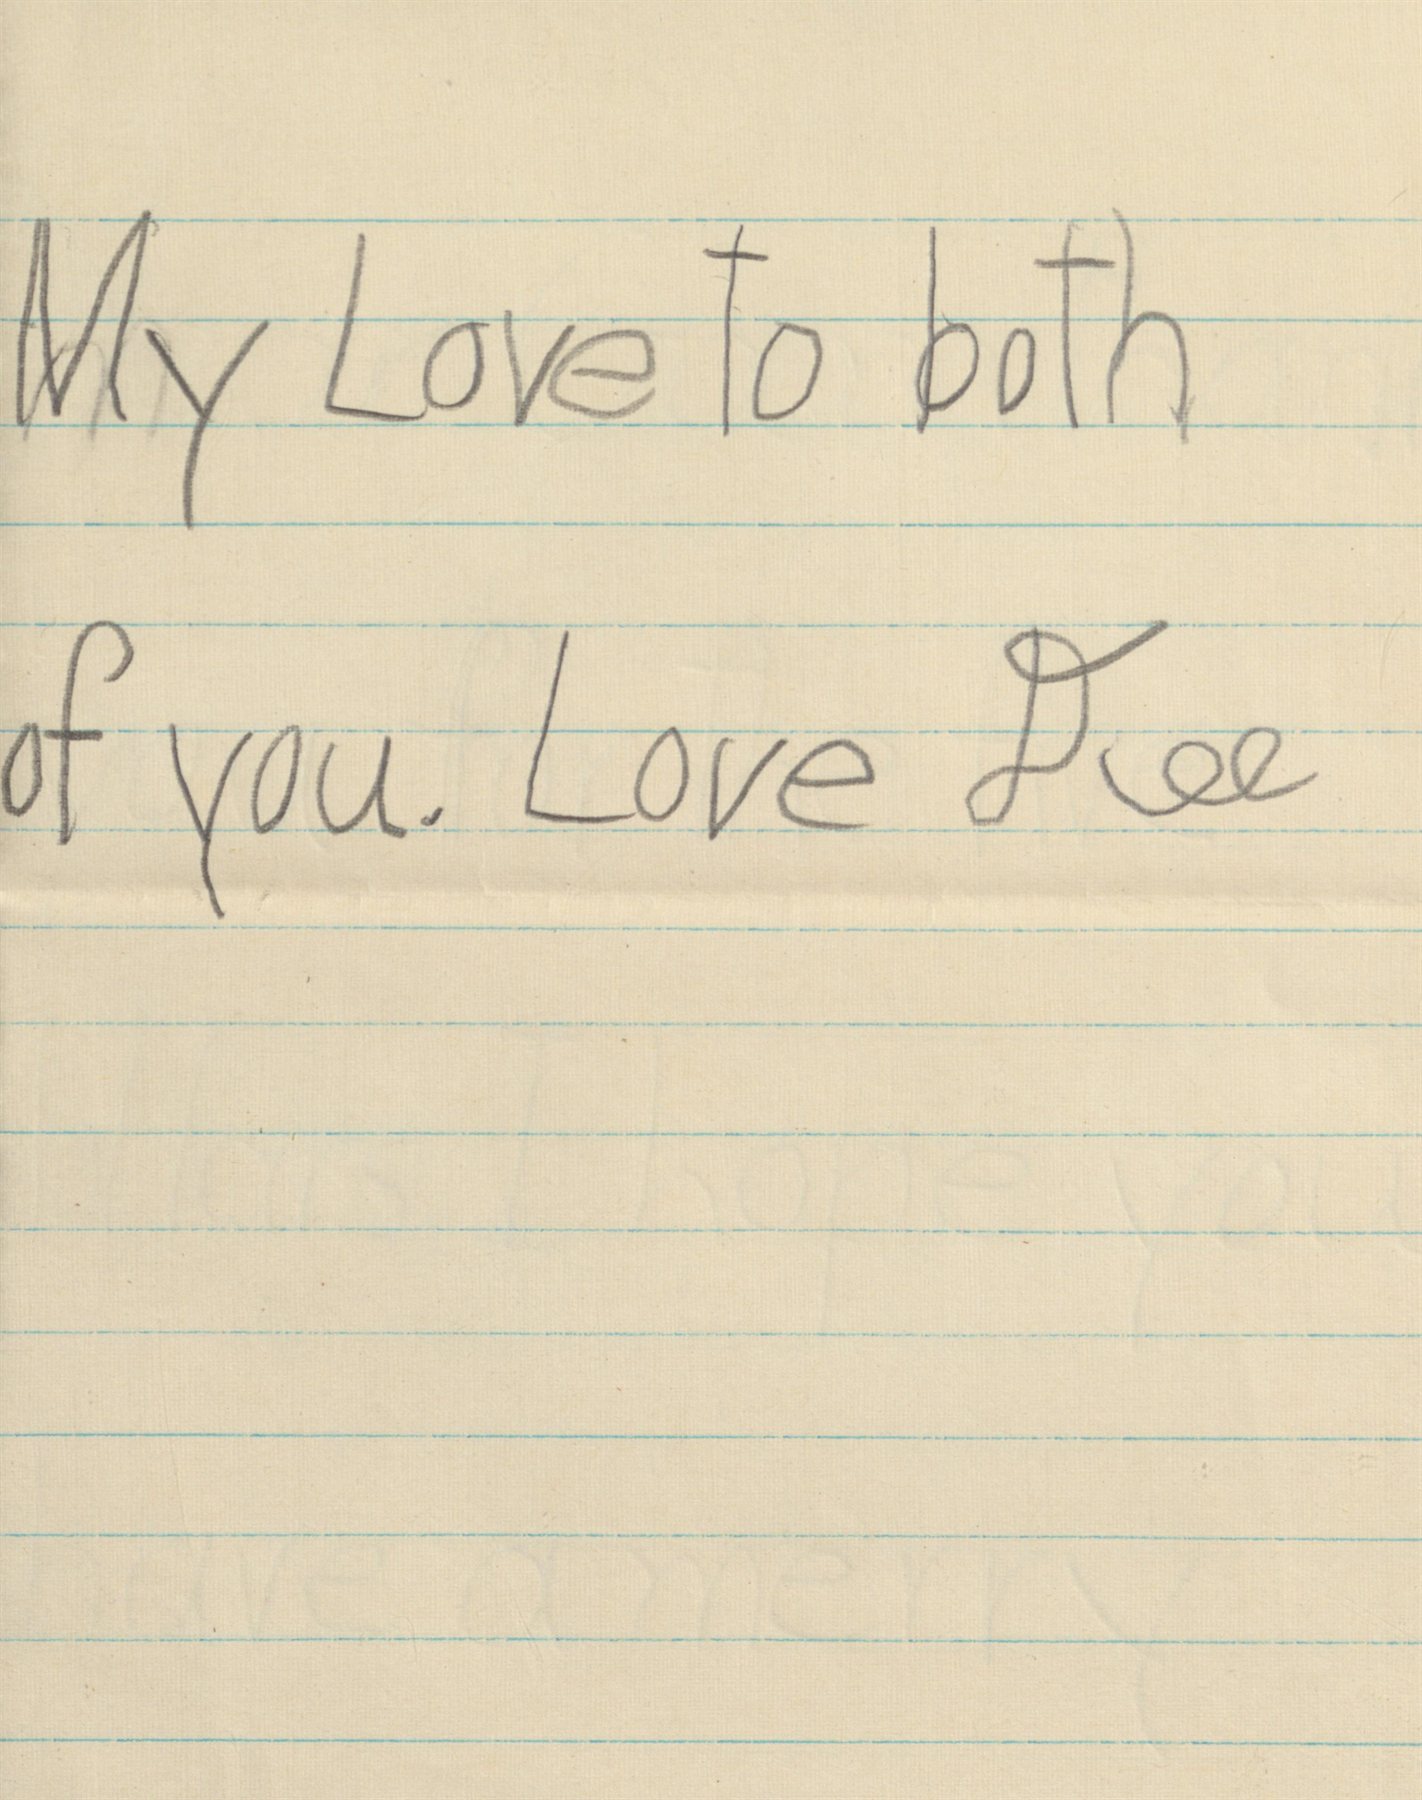 My Love to both
of you. Love Dee